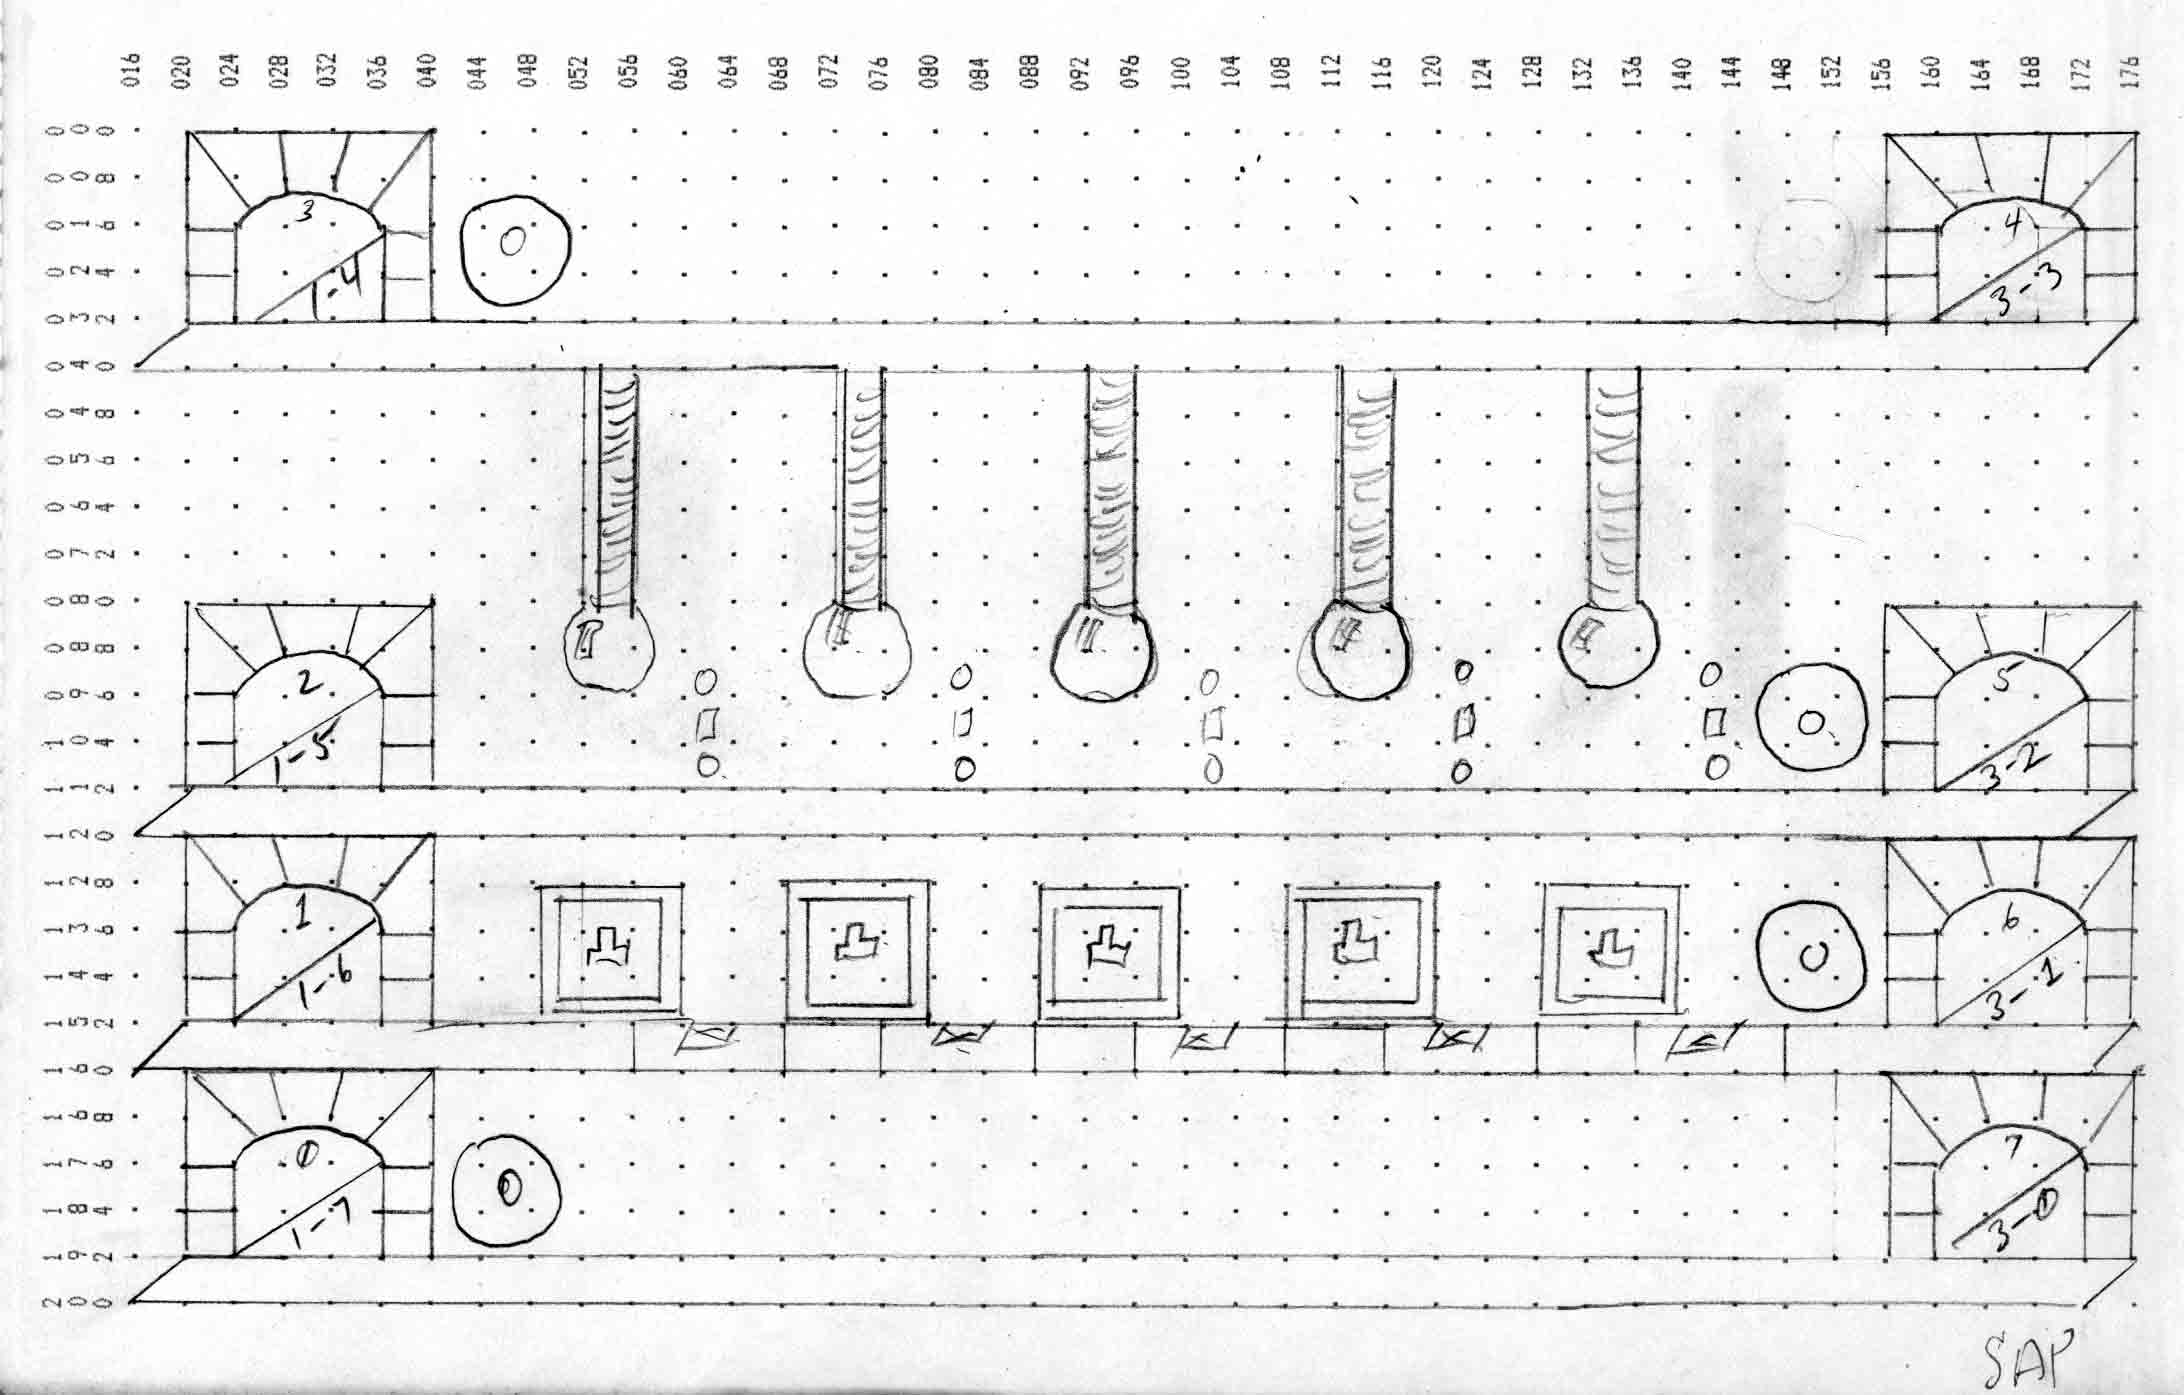 016 020 024 028 032 036 040 044 048 052 056 060 064 068 072 076 080 084 088 092 096 100 104 108 112 116 120 124 128 132 136 140 144 148 152 156 160 164 168 172 176
000
008
016
024
032
040
048
056
064
072
080
088
096
104
112
120
128
136
144
152
160
168
176
184
192
200
3
1-4
4
3-3
2
1-5
5
3-2
1
1-6
6
3-1
0
1-7
7
3-0
SAP